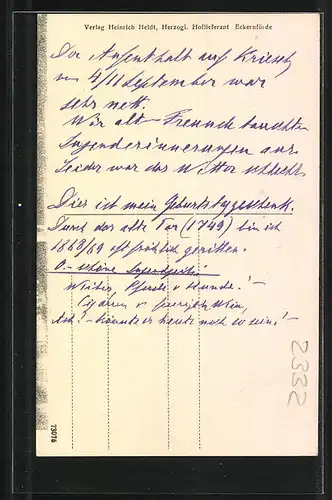 Verlag Heinrich Heldt, Herzogl. Hoflieferant Eckernförde
Der Aufenthalt auf Krieseby
von 4/11 September war
sehr nett.
Wir alte Freunde tauschten
Jugenderinnerungen aus
Leider war das Wetter schlecht.
Dies ist mein Geburtstagsgeschenk.
Durch das alte Tor (1749) bin ich
1868/69 oft fröhlich geritten.
O- schöne Jugendzeit!
Weiber, Pferde u Hunde!
Cigarren u Wein,
Ach! - könnte es heute noch so sein!
2332
73076